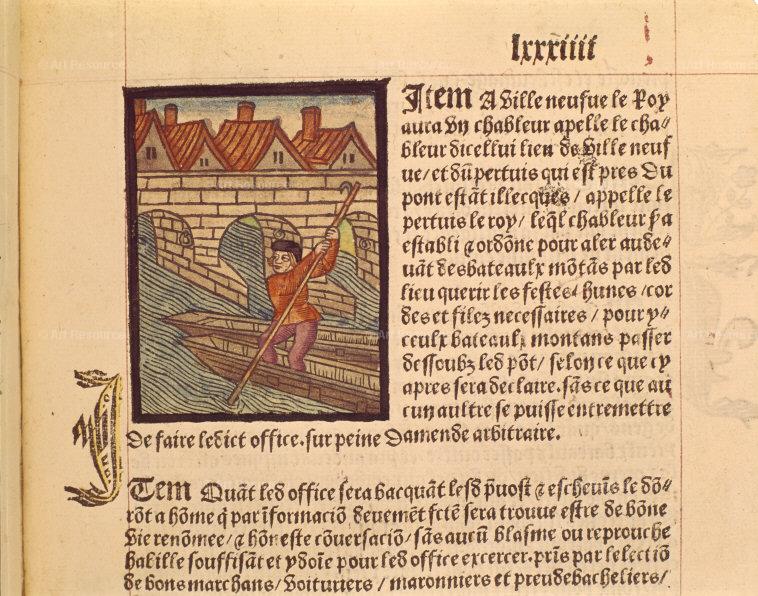 lxxxiiii
Item A Ville neufue le Roy
aura vn chableur apelle le cha⸗
bleur dicellui lieu de Ville neuf
ue/et dũ pertuis qui est pres Du
pont estãt illecques/ appelle le
pertuis le roy/ leq̃l chableur y a
establi ⁊ ordõne pour aler aude⸗
uãt des bateaulx mõtãs par led
lieu querir les festes hunes/cor
des et filez necessaires/ pour y⸗
ceulx bateaulx montans passer
dessoubz led põt/ selon ce que cy
apres sera declaire. sãs ce que au
cun aultre se puisse entremettre
De faire ledict office. sur peine Damende arbitraire.
ITem Quãt led office sera vacquãt lesd p̃uost ⁊ escheuĩs le dõ⸗
rõt a hõme q̃ par ĩformaciõ deuemẽt fctẽ sera trouue estre de bõne
vie renõmee/⁊ hõneste cõuersaciõ/ sãs aucũ blasme ou reprouche
habille souffisãt et ydoĩe pour led office excercer. prĩs par lelectiõ
de bons marchans/ voituriers/ maronniers et preudebacheliers/